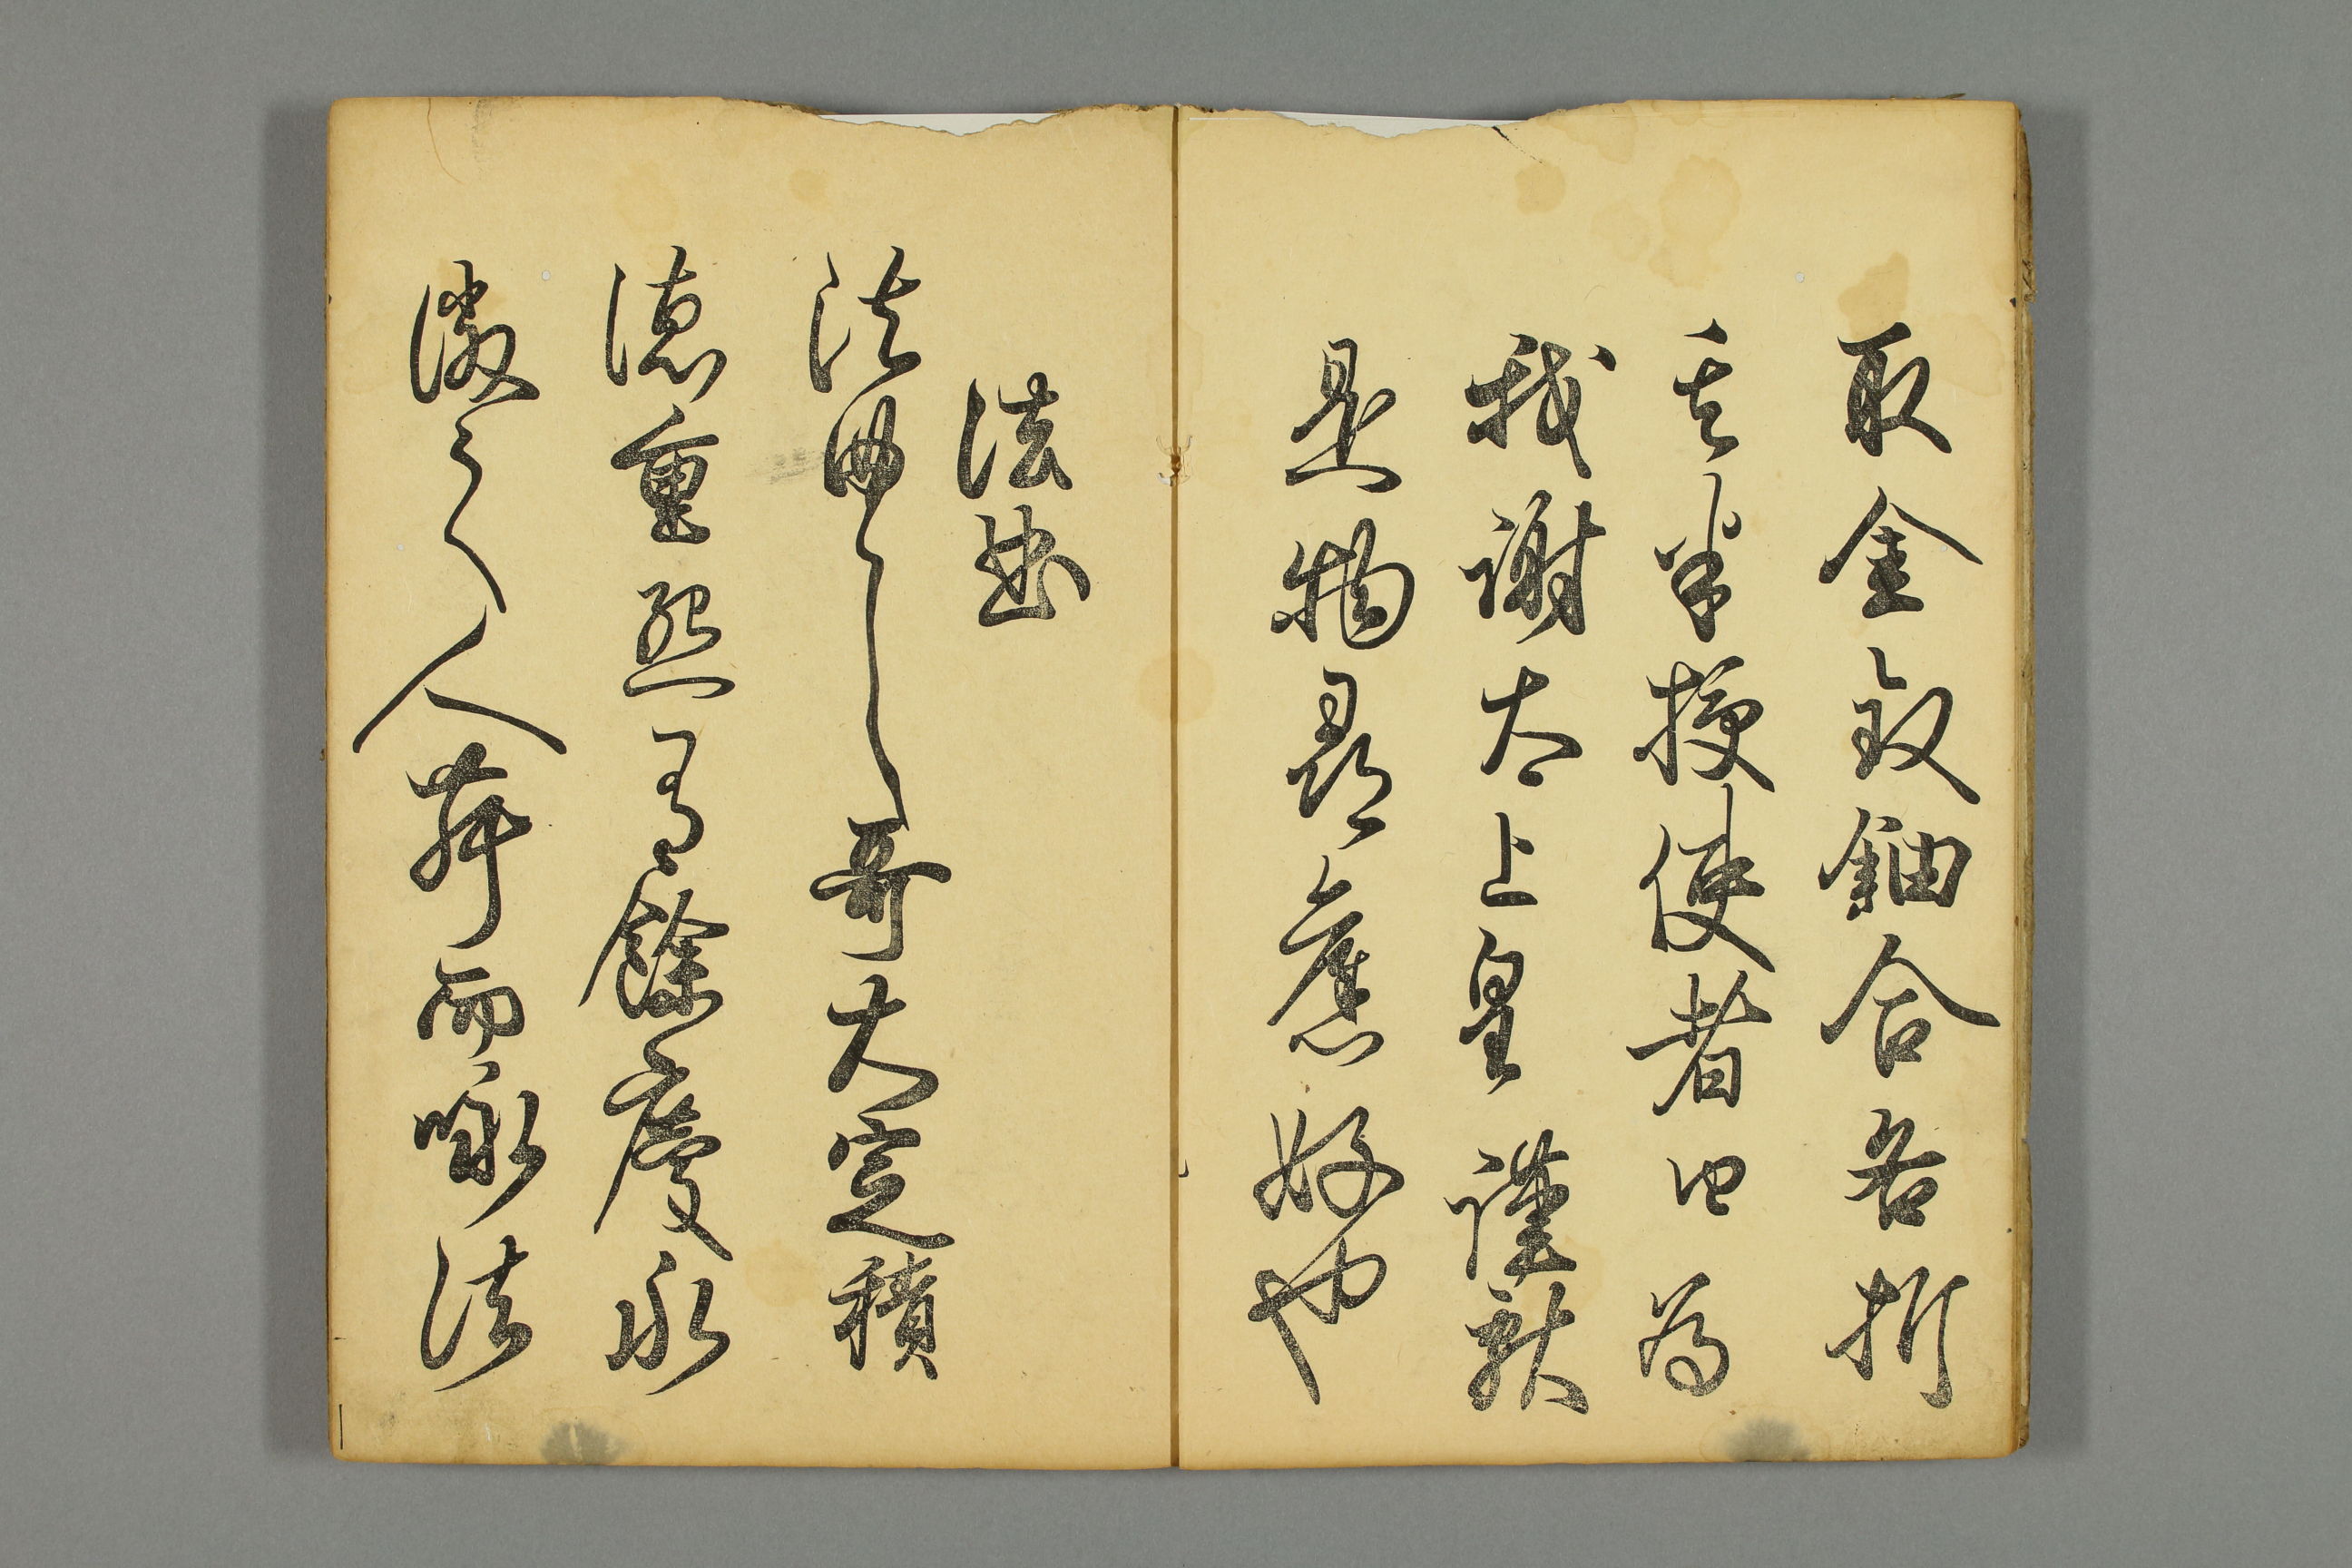 取金釵鈿合各折
其半授使者曰為
我謝太上皇謹獻
是物尋舊好也
法曲
法曲〱哥大定積
徳重熙有餘慶永
徽之〱人舞而詠法